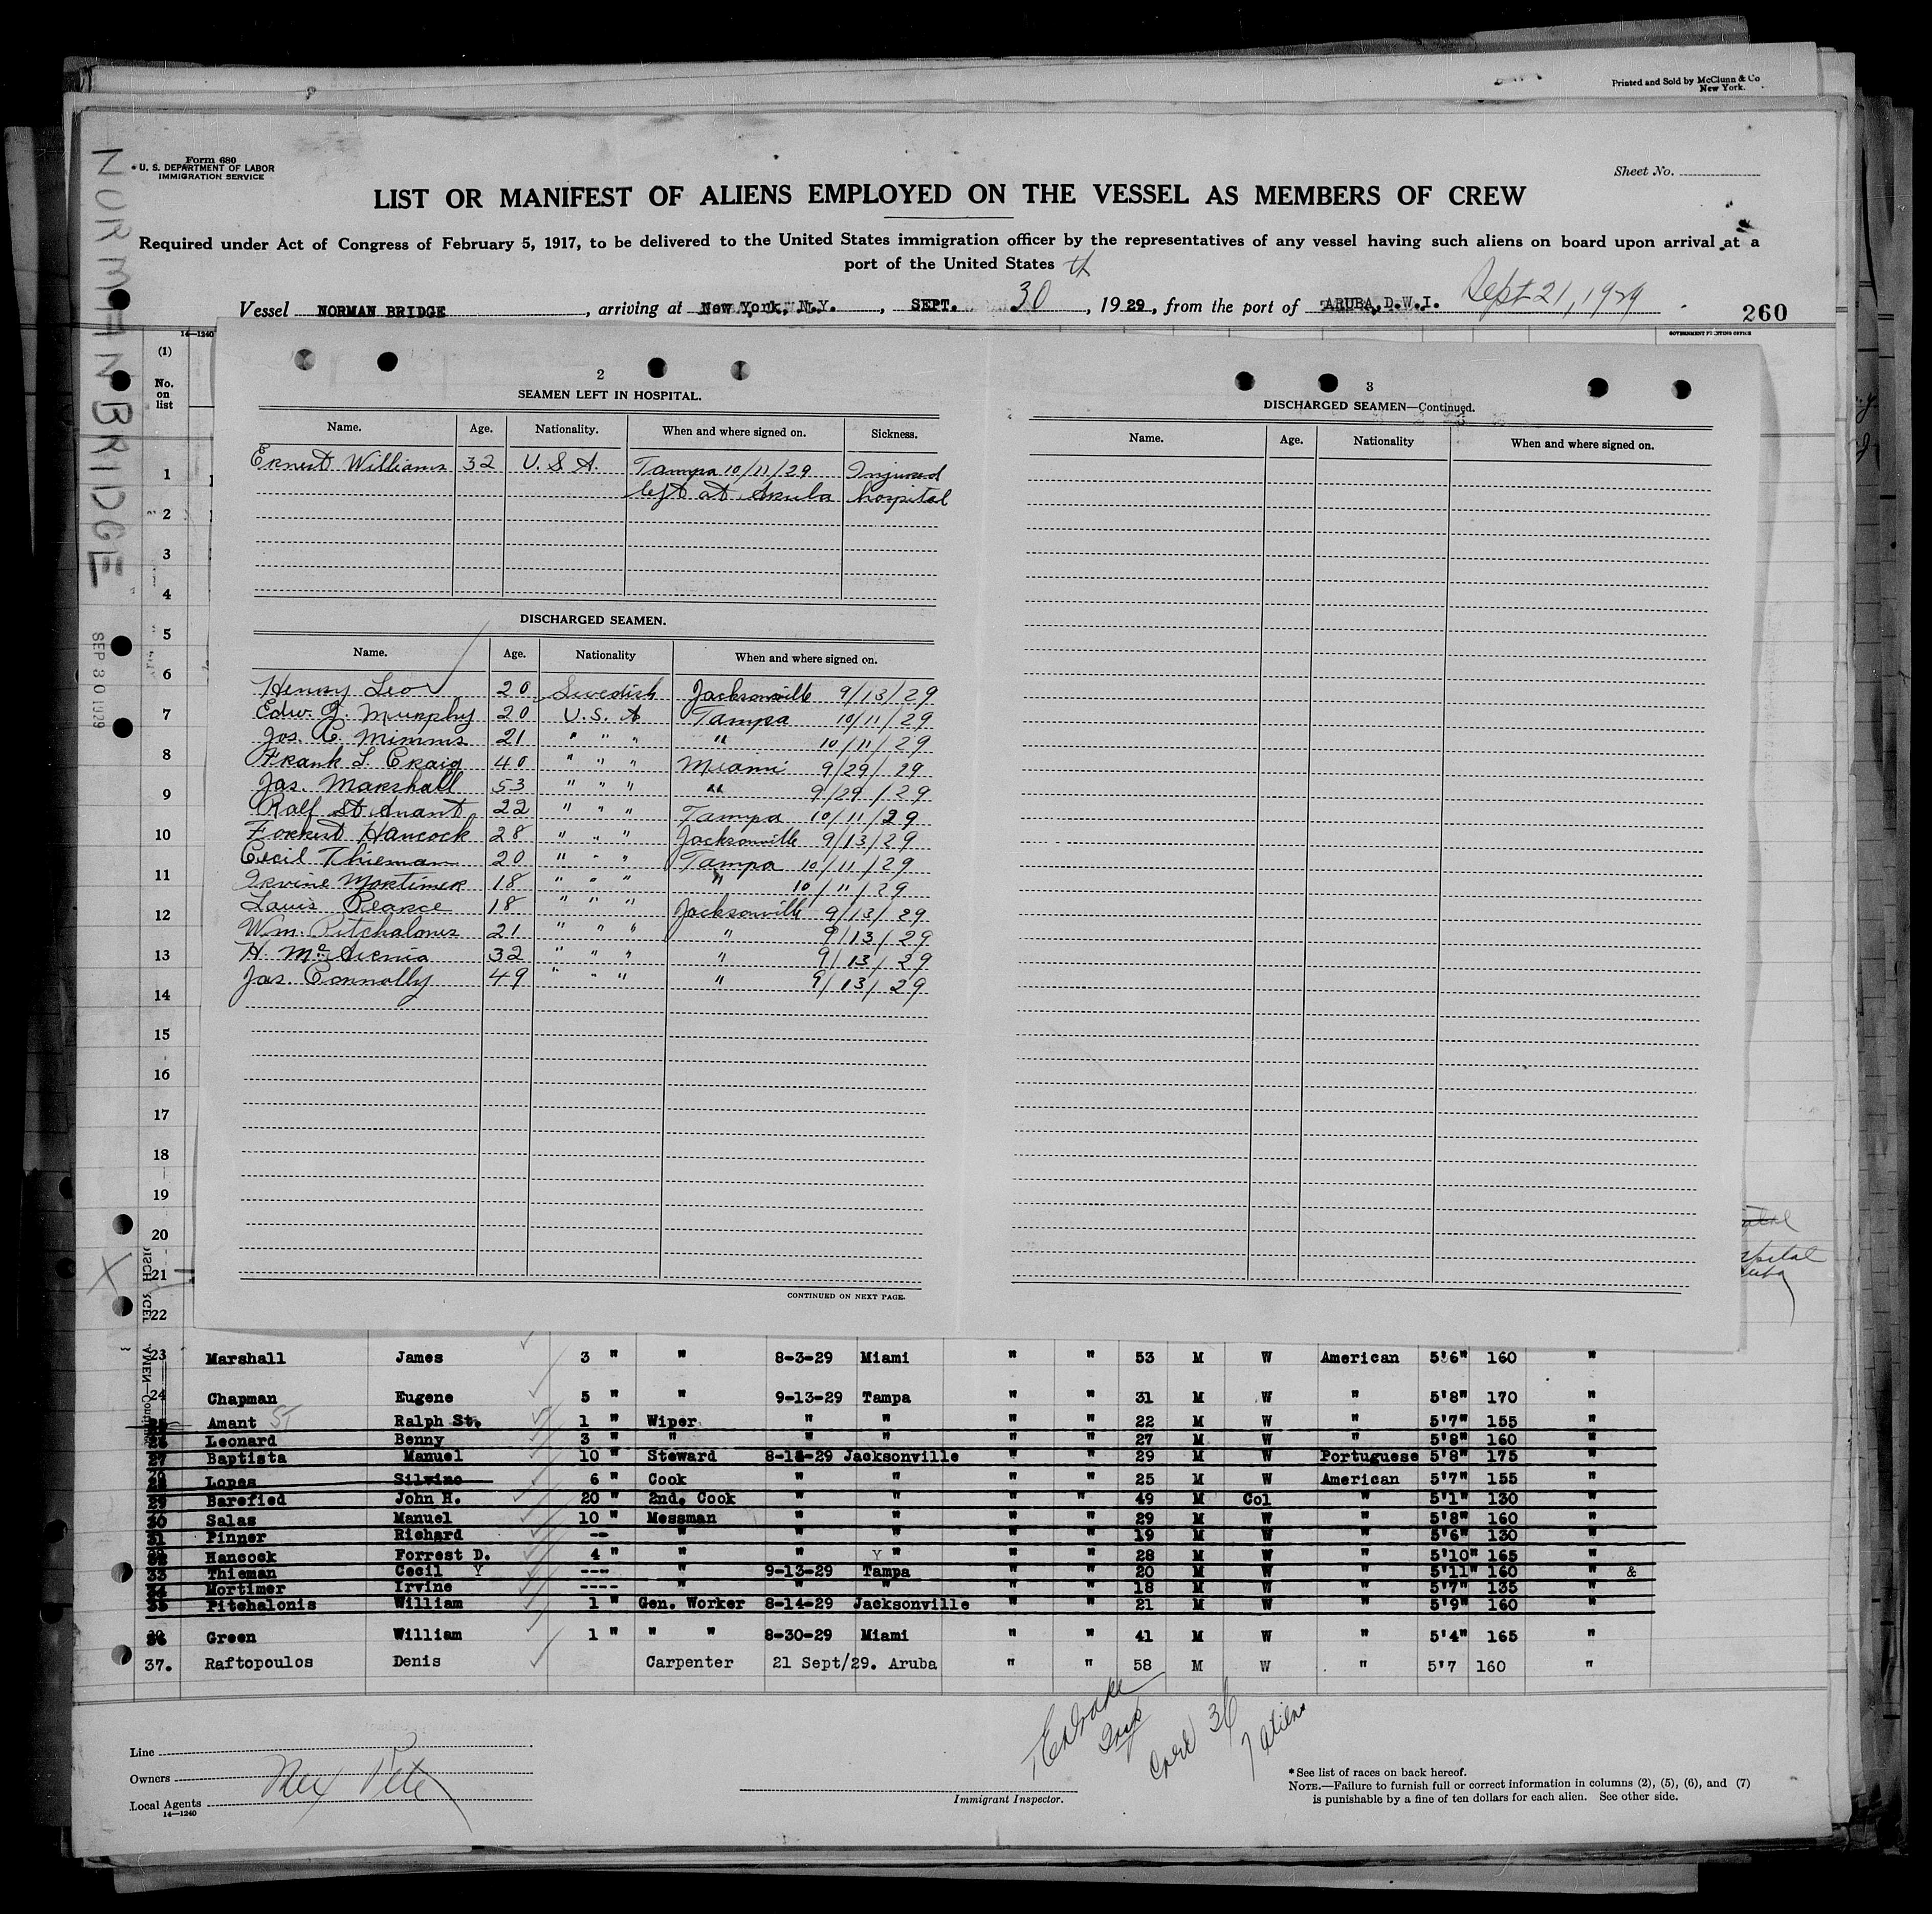 Printed and Sold by McClunn & Co
New York.
Form 680
U. S. DEPARTMENT OF LABOR
IMMIGRATION SERVICE
Sheet No.
LIST OR MANIFEST OF ALIENS EMPLOYED ON THE VESSEL AS MEMBERS OF CREW
Required under Act of Congress of February 5, 1917, to be delivered to the United States immigration officer by the representatives of any vessel having such aliens on board upon arrival at a
port of the United States
Vessel NORMAN BRIDGE, arriving at New York, N.Y., SEPT. 30th, 1929, from the port of ARUBA, D.W.I. Sept 21, 1929
260
NORMAN BRIDGE
SEP 30 1929
14—1240
GOVERNMENT PRINTING OFFICE
(1)
No. on list
2
SEAMEN LEFT IN HOSPITAL.
Name. Age. Nationality. When and where signed on. Sickness.
Ernest Williams 32 U.S.A. Tampa 10/11/29 Injured
left at Aruba hospital
DISCHARGED SEAMEN.
Name. Age. Nationality When and where signed on.
Henry Leo 20 Swedish Jacksonville 9/13/29
Edw. J. Murphy 20 U.S.A Tampa 10/11/29
Jos. C. Mimms 21 " " " " 10/11/29
Frank L. Craig 40 " " " Miami 9/29/29
Jas. Marshall 53 " " " " 9/29/29
Ralf St Amant 22 " " " Tampa 10/11/29
Forrest Hancock 28 " " " Jacksonville 9/13/29
Cecil Thieman 20 " " " Tampa 10/11/29
Irvine Mortimer 18 " " " " 10/11/29
Louis Pearce 18 " " " Jacksonville 9/13/29
Wm. Pitchalonis 21 " " " " 9/13/29
H. 32 " " " " 9/13/29
Jas. Connolly 49 " " " " 9/13/29
CONTINUED ON NEXT PAGE.
3
DISCHARGED SEAMEN—Continued.
Name. Age. Nationality When and where signed on.
1
2
3
4
5
6
7
8
9
10
11
12
13
14
15
16
17
18
19
20
21
22
23 Marshall James 3 " " 8-3-29 Miami " " 53 M W American 5'6" 160 "
24 Chapman Eugene 5 " " 9-13-29 Tampa " " 31 M W " 5'8" 170 "
25 Amant St Ralph St. 1 " Wiper " " " " 22 M W " 5'7" 155 "
26 Leonard Benny 3 " " " " " " 27 M W " 5'8" 160 "
27 Baptista Manuel 10 " Steward 8-14-29 Jacksonville " " 29 M W Portuguese 5'8" 175 "
28 Lopes Silvino 6 " Cook " " " " 25 M W American 5'7" 155 "
29 Barefied John H. 20 " 2nd. Cook " " " " 49 M Col " 5'1" 130 "
30 Salas Manuel 10 " Messman " " " " 29 M W " 5'8" 160 "
31 Pinner Richard -- " " " " " 19 M W " 5'6" 130 "
32 Hancock Forrest D. 4 " " " Y " " " 28 M W " 5'10" 165 "
33 Thieman Cecil Y --- " 9-13-29 Tampa " " 20 M W " 5'11" 160 " &
34 Mortimer Irvine ---- " " " " " 18 M W " 5'7" 135 "
35 Pitchalonis William 1 " Gen. Worker 8-14-29 Jacksonville " " 21 M W " 5'9" 160 "
36 Green William 1 " " " 8-30-29 Miami " " 41 M W " 5'4" 165 "
37. Raftopoulos Denis Carpenter 21 Sept/29. Aruba " " 58 M W " 5'7 160 "
Line
Owners Mex Pete
Local Agents
14—1240
Insp
Crew 36
7 Aliens
Immigrant Inspector.
* See list of races on back hereof.
NOTE.—Failure to furnish full or correct information in columns (2), (5), (6), and (7)
is punishable by a fine of ten dollars for each alien. See other side.